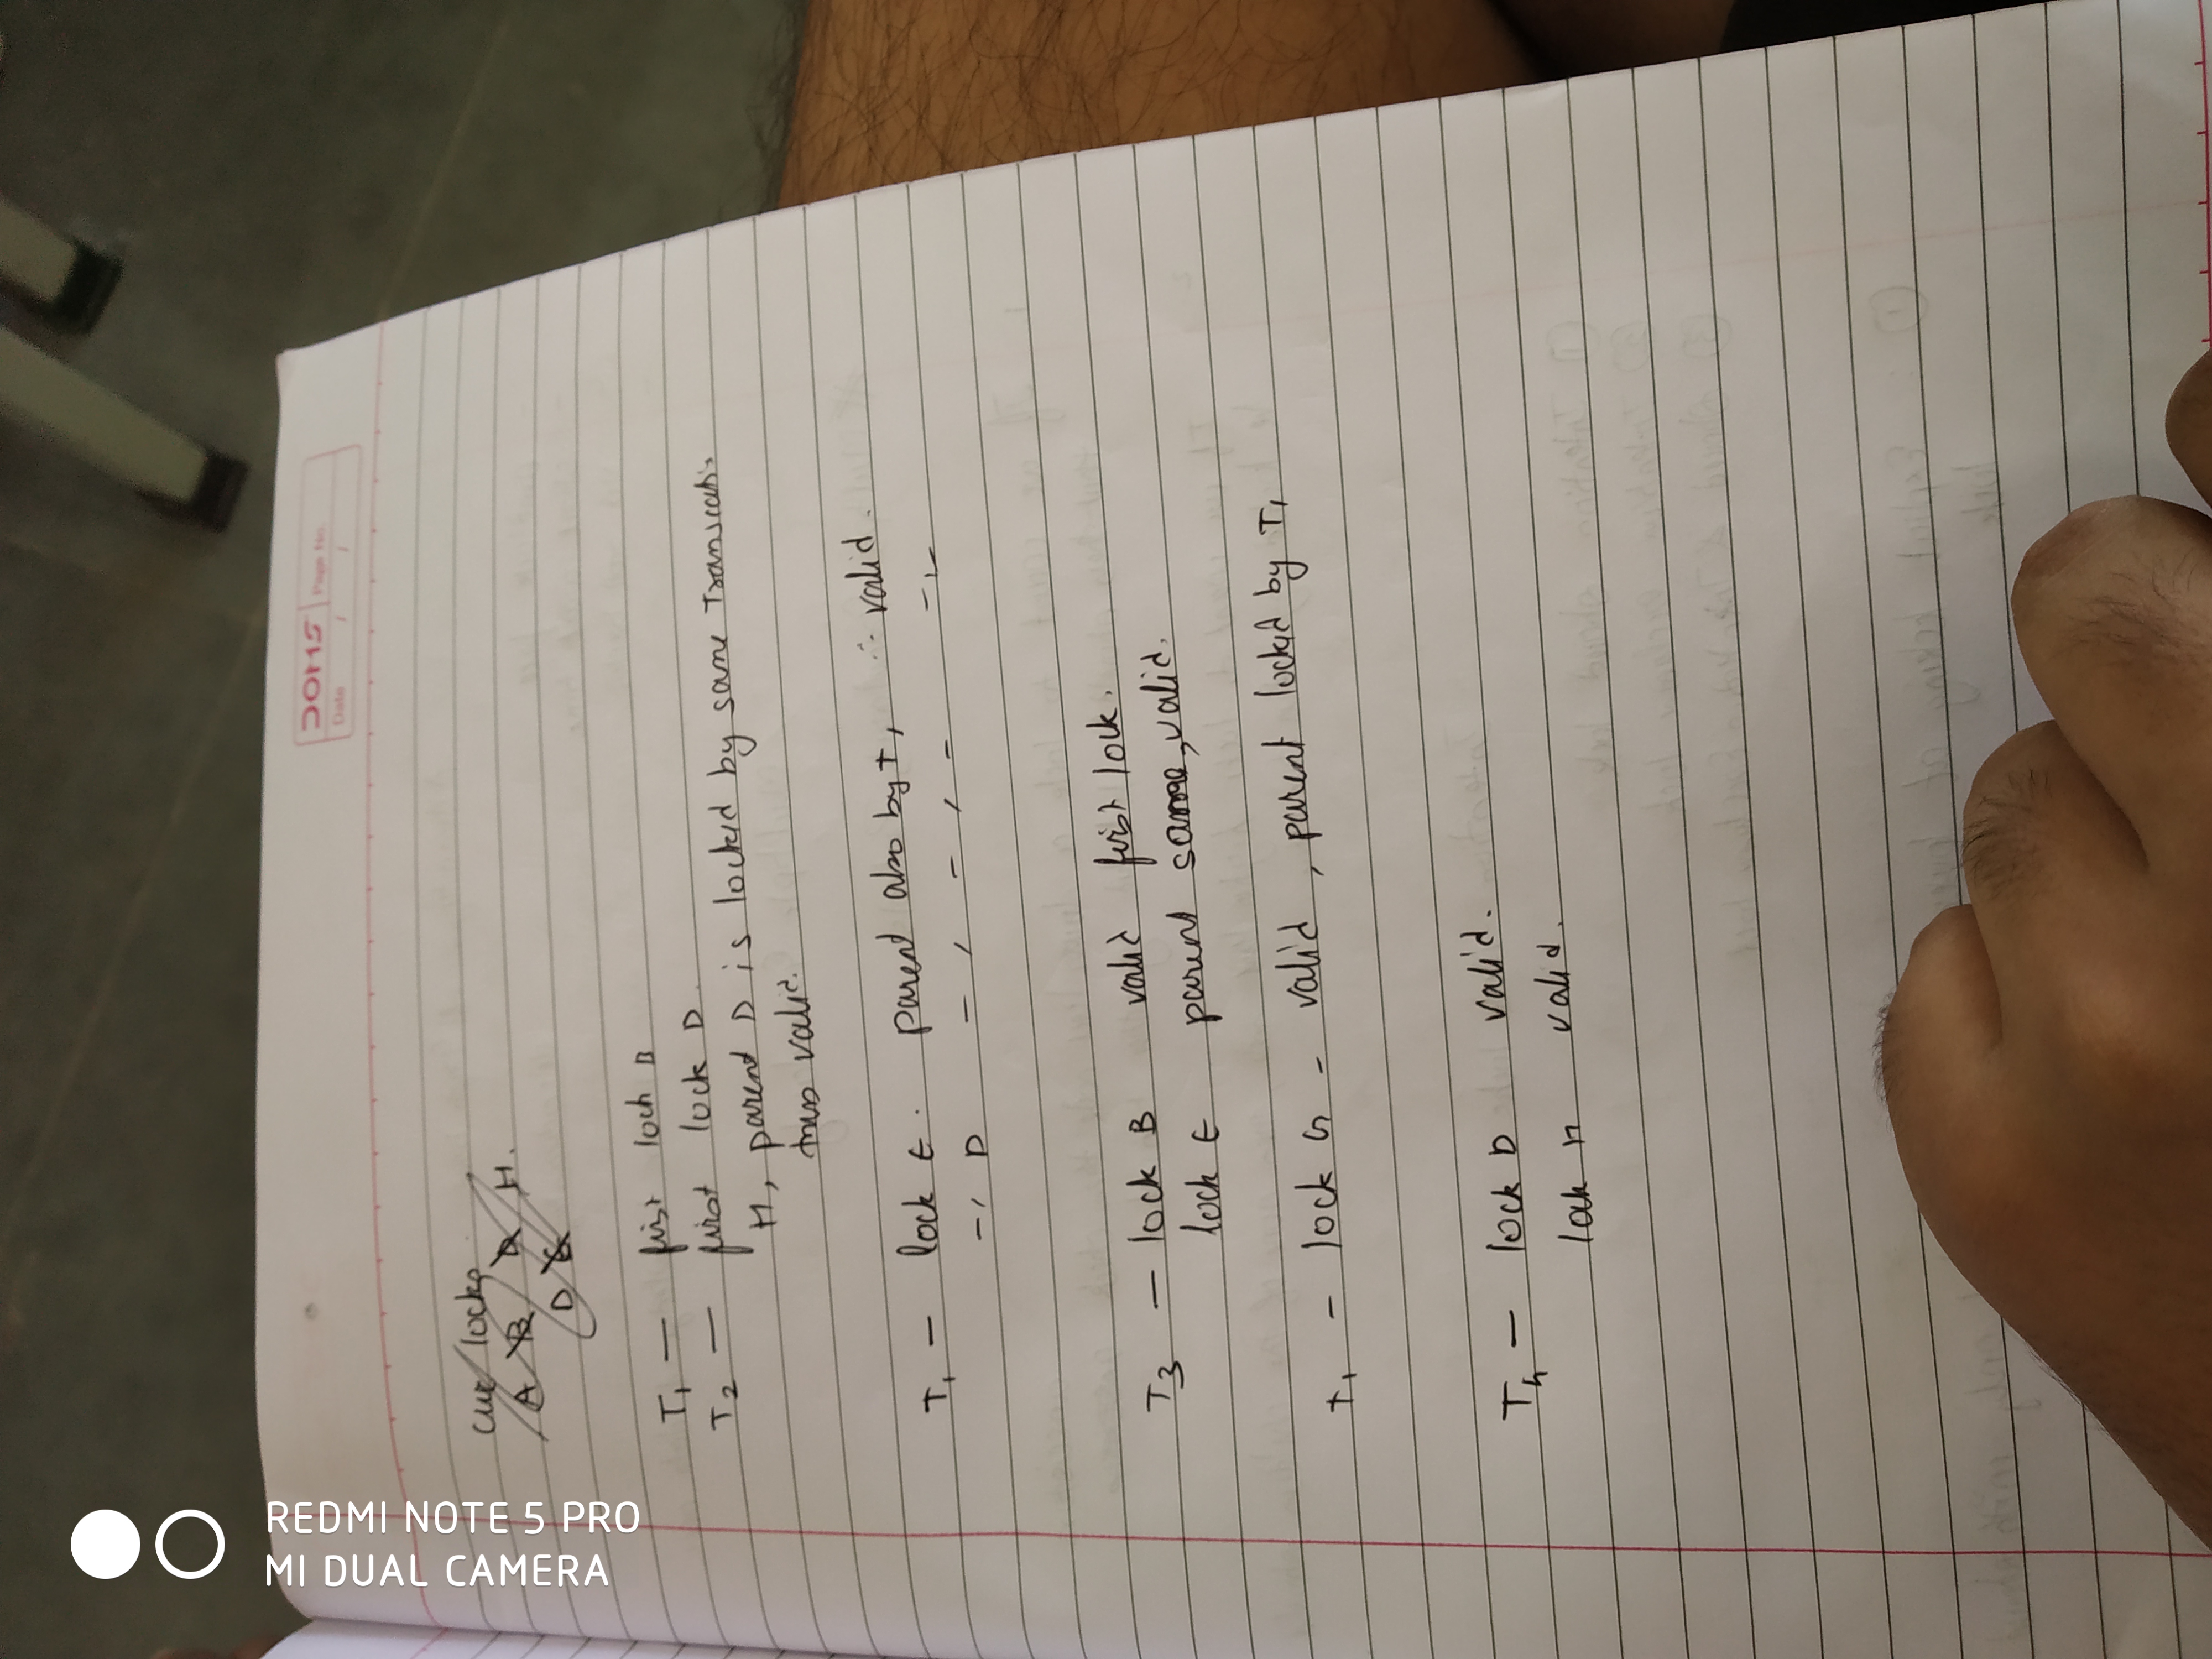 DOMS Page No.
Date / /
curr locks
A B D H.
D E
T1 — first loch B
T2 — first lock D.
H, parent D is locked by same Transcatis
thus valid.
T1 — lock E. parent also by T1 ∴ valid.
-,, D -,, -,, -,,-
T3 — lock B valid first lock.
lock E parent same, valid.
T1 - lock G - valid, parent locked by T1
T4 — lock D valid.
lock H valid.
REDMI NOTE 5 PRO
MI DUAL CAMERA